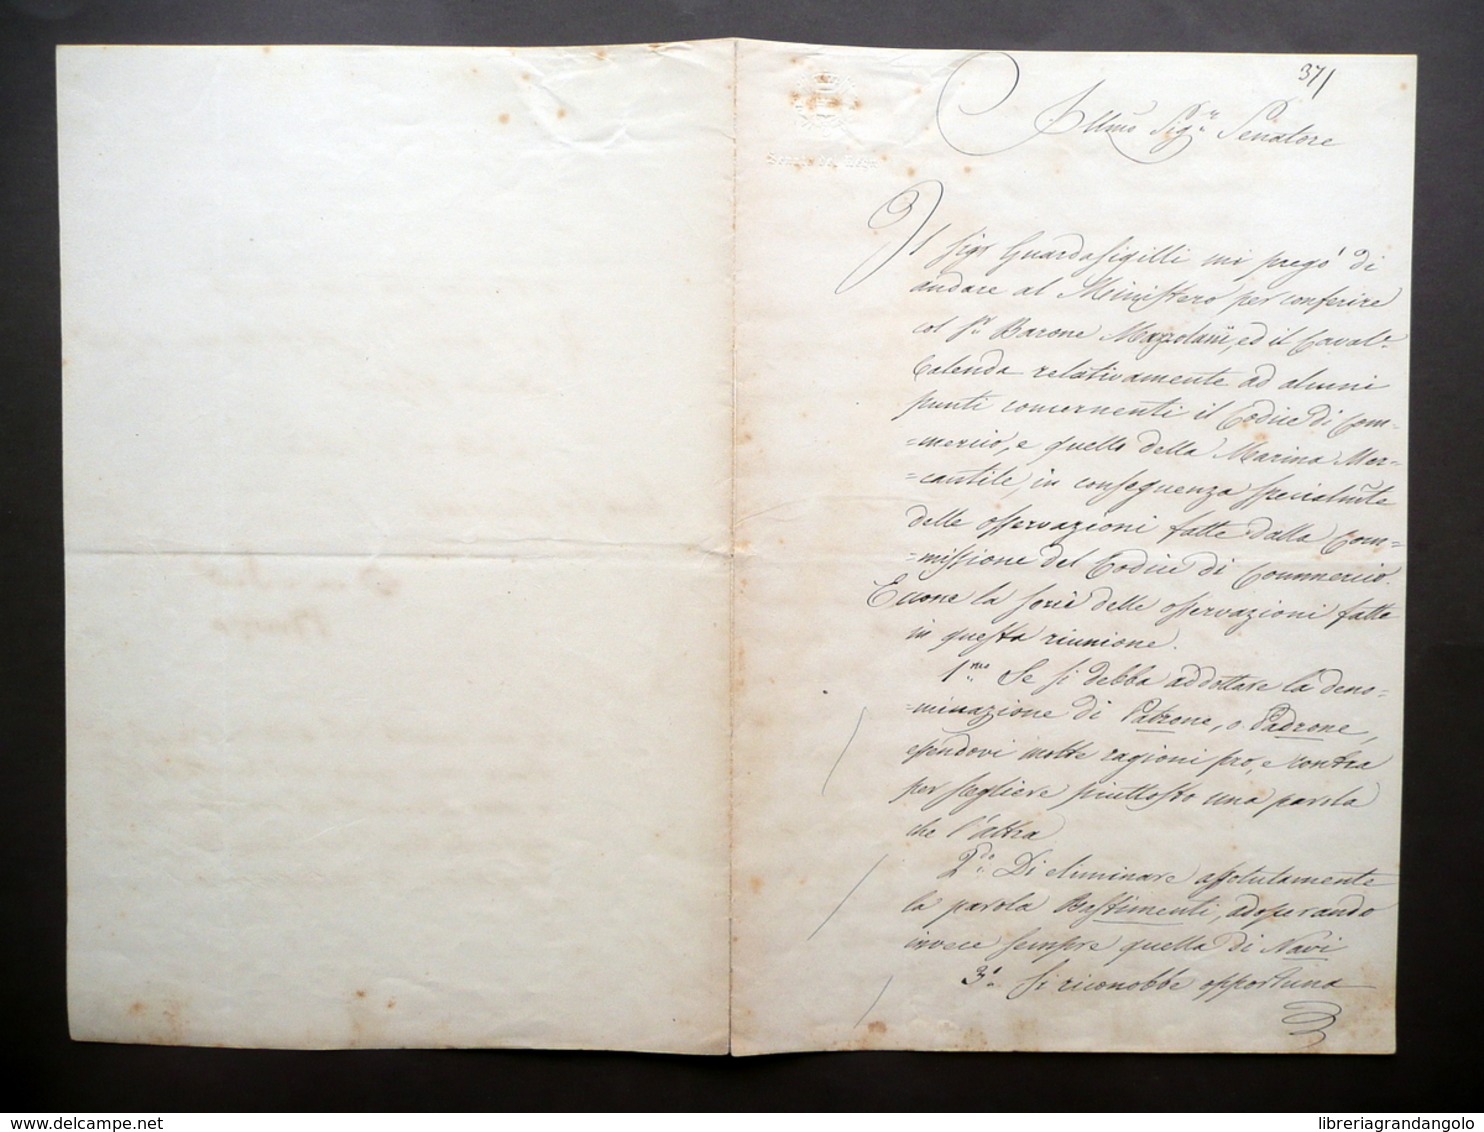 371
Illmo Sigre Senatore
Senato del Regno
Il Sigr Guardasigilli mi pregò di
andare al Ministero per conferire
col Sr Barone Mazzolani, ed il Cavalr
Calenda relativamente ad alcuni
punti concernenti il Codice di Com-
=mercio, e quello della Marina Mer-
=cantile, in conseguenza specialmte
delle osservazioni fatte dalla Com-
=missione del Codice di Commercio.
Eccone la serie delle osservazioni fatte
in questa riunione.
1.mo Se si debba addottare la deno-
=minazione di Patrone, o Padrone,
essendovi molte ragioni pro, e contra
per scegliere piuttosto una parola
che l'altra
2.do Di eliminare assolutamente
la parola Bastimenti, adoperando
invece sempre quella di Navi
3.o Si riconobbe opportuna
delcampe.net
libreriagrandangolo